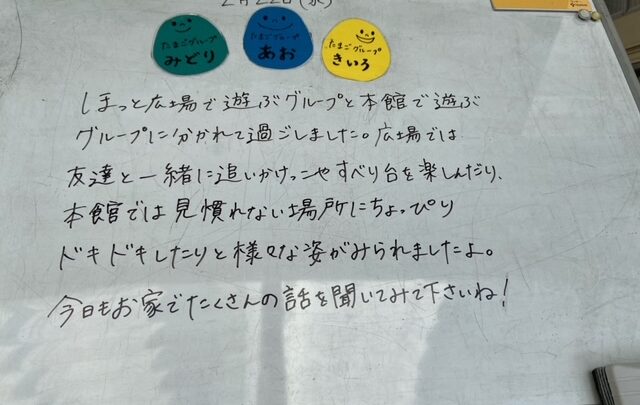 2月22日(水)
たまごグループ みどり
たまごグループ あお
たまごグループ きいろ
しまっと広場で遊ぶグループと本館で遊ぶ
グループに分かれて過ごしました。広場では
友達と一緒に追いかけっこやすべり台を楽しんだり、
本館では見慣れない場所にちょっぴり
ドキドキしたりと様々な姿がみられましたよ。
今日もお家でたくさんの話を聞いてみて下さいね!